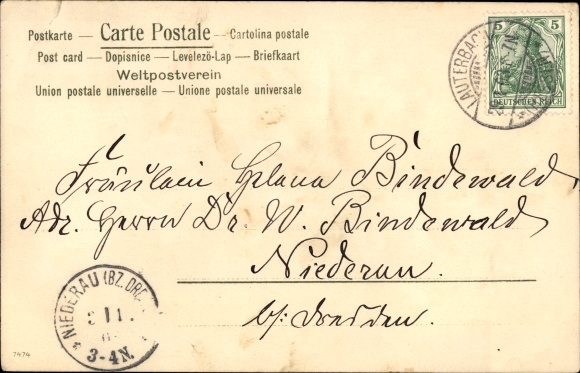 Postkarte — Carte Postale — Cartolina postale
Post card — Dopisnice — Levelező-Lap — Briefkaart
Weltpostverein
Union postale universelle — Unione postale universale
LAUTERBACH
5 5
DEUTSCHES REICH
Fräulein Helena Bindewald
Adr. Herrn Dr. W. Bindewald
Niederau.
b/ Dresden.
NIEDERAU (BZ. DRE
3-4N.
7474